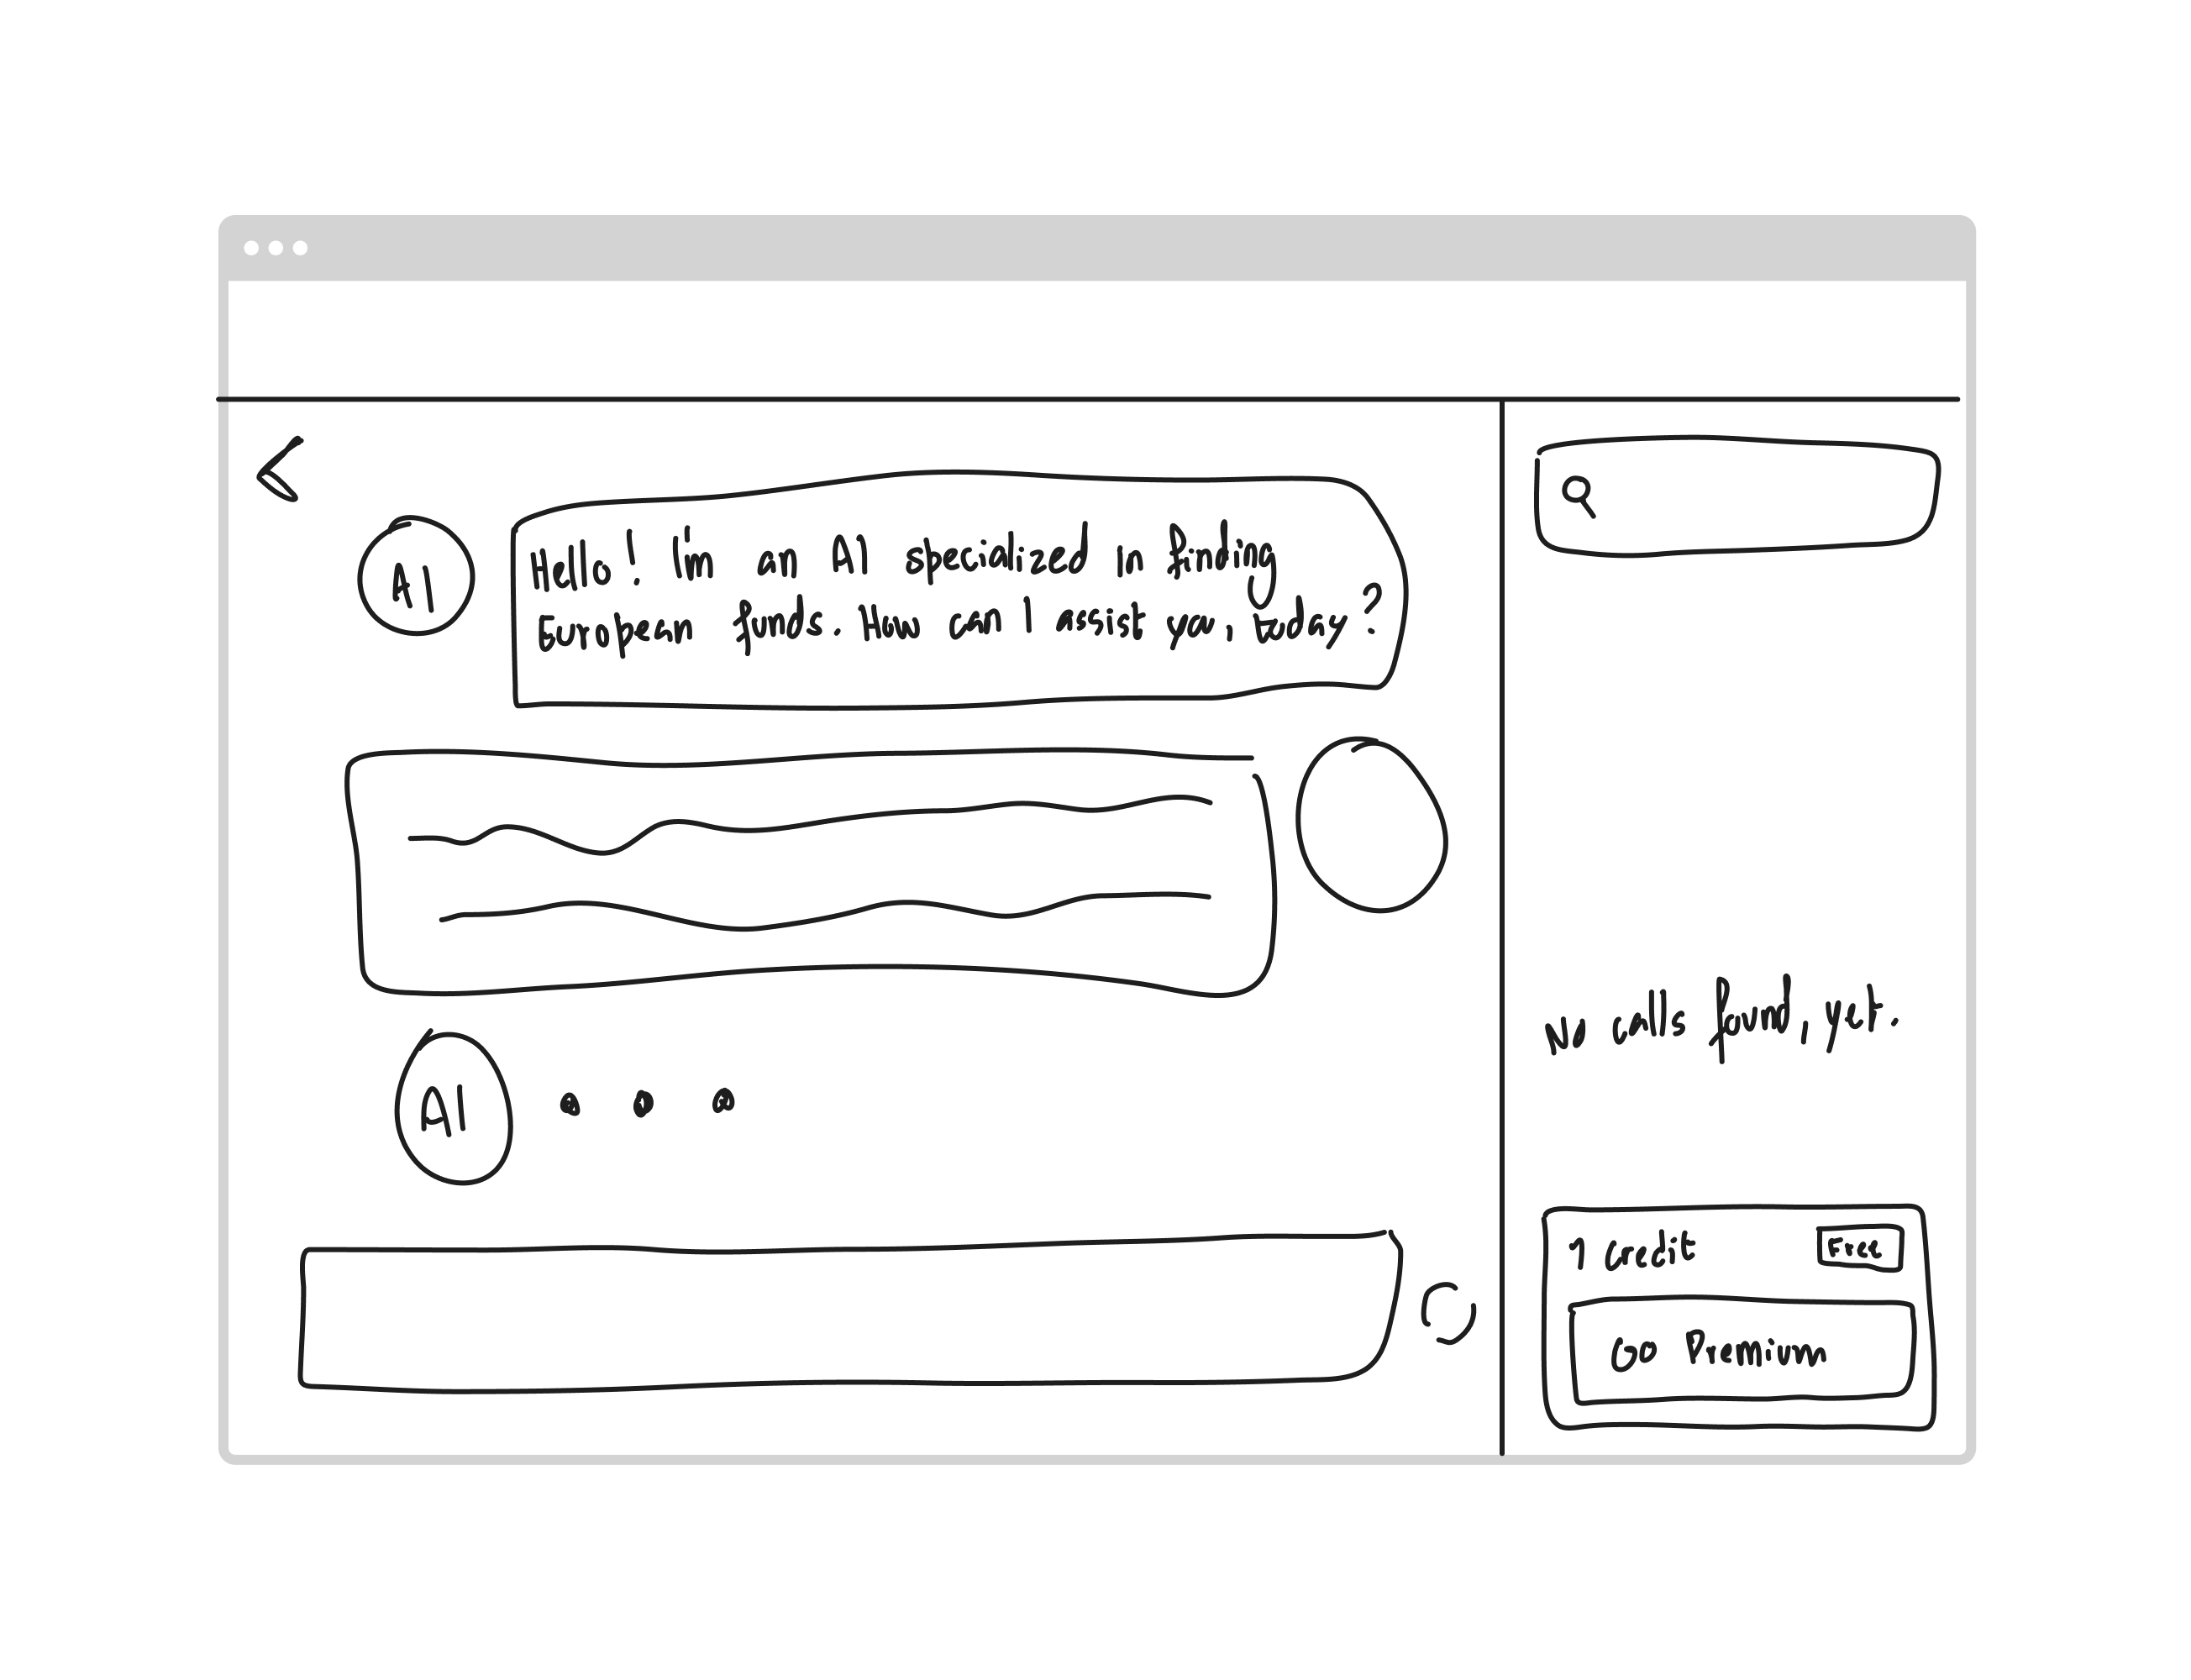 AI
Hello! I'm an AI specialized in finding
European funds. How can I assist you, today?
AI
No calls found, yet.
1 Credit
Free
Go Premium